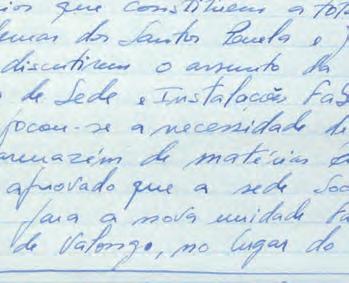 ios que constituem a tot
dos Santos Panela e
discutirem o assunto da
de Sede e Instalações Fab
focou-se a necessidade de
armazém de matérias
aprovado que a sede Soc
para a nova unidade Fa
de Valongo, no lugar do